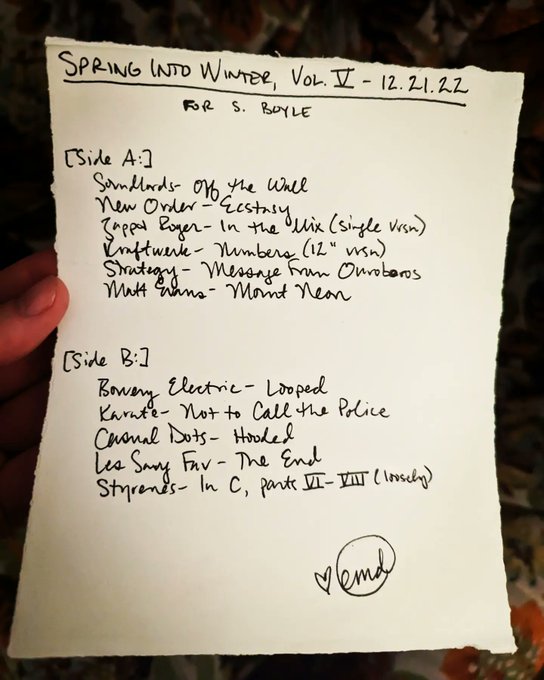 SPRING INTO WINTER, VOL. V - 12.21.22
FOR S. BOYLE
[Side A:]
Soundlords - Off the Wall
New Order - Ecstasy
Zapp & Roger - In the Mix (single vrsn)
Kraftwerk - Numbers (12" vrsn)
Strategy - Message From Ouroboros
Matt Evans - Mount Neon
[Side B:]
Bowery Electric - Looped
Karate - Not to Call the Police
Casual Dots - Hooded
Les Savy Fav - The End
Styrenes - In C, parts VI - VIII (loosely)
♡ emd